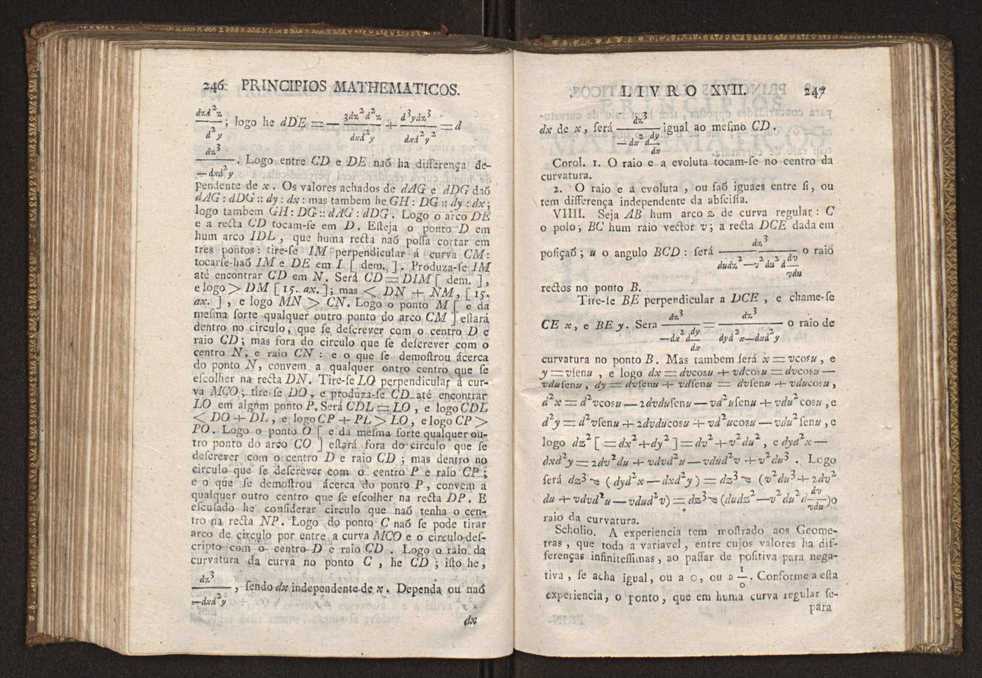 246 PRINCIPIOS MATHEMATICOS.
dzd²z/d²y ; logo he dDE = — 3dz²d²z/dxd²y + d³ydz³/dxd²y² = d
dz³/—dxd²y . Logo entre CD e DE naõ ha differença de-
pendente de x . Os valores achados de dAG e dDG daõ
dAG : dDG :: dy : dx : mas tambem he GH : DG :: dy : dx ;
logo tambem GH : DG :: dAG : dDG . Logo o arco DE
e a recta CD tocam-se em D . Esteja o ponto D em
hum arco IDL , que huma recta naõ possa cortar em
tres pontos : tire-se IM perpendicular á curva CM :
tocarse-haõ IM e DE em I. [ dem. ]. Produza-se IM
até encontrar CD em N. Será CD = DIM [ dem. ],
e logo > DM [ 15. ax. ]; mas < DN + NM, [ 15.
ax. ] , e logo MN > CN. Logo o ponto M [ e da
mesma sorte qualquer outro ponto do arco CM ] estará
dentro no circulo, que se descrever com o centro D e
raio CD ; mas fora do circulo que se descrever com o
centro N, e raio CN : e o que se demostrou ácerca
do ponto N, convem a qualquer outro centro que se
escolher na recta DN. Tire-se LO perpendicular á cur-
va MCO ; tire-se DO , e produza-se CD até encontrar
LO em algum ponto P. Será CDL = LO , e logo CDL
< DO + DL , e logo CP + PL > LO, e logo CP >
PO. Logo o ponto O [ e da mesma sorte qualquer ou-
tro ponto do arco CO ] estará fora do circulo que se
descrever com o centro D e raio CD ; mas dentro no
circulo que se descrever com o centro P e raio CP ;
e o que se demostrou ácerca do ponto P , convem a
qualquer outro centro que se escolher na recta DP. E
escusado he considerar circulo que naõ tenha o cen-
tro na recta NP. Logo do ponto C naõ se pode tirar
arco de circulo por entre a curva MCO e o circulo des-
cripto com o centro D e raio CD . Logo o raio da
curvatura da curva no ponto C , he CD ; isto he ,
dz³/—dxd²y , sendo dx independente de x. Dependa ou naõ
dx
LIVRO XVII. 247
dx de x, será dz³/—dx²d dy/dx igual ao mesmo CD.
Corol. 1. O raio e a evoluta tocam-se no centro da
curvatura.
2. O raio e a evoluta , ou saõ iguaes entre si , ou
tem differença independente da abscissa.
VIIII. Seja AB hum arco z de curva regular : C
o polo ; BC hum raio vector v ; a recta DCE dada em
posiçaõ ; u o angulo BCD : será dz³/dudz²—v²du²d dv/vdu o raio
rectos no ponto B.
Tire-se BE perpendicular a DCE , e chame-se
CE x, e BE y. Sera dz³/—dx²d dy/dx = dz³/dyd²x—dxd²y o raio de
curvatura no ponto B. Mas tambem será x = vcosu , e
y = vsenu , e logo dx = dvcosu + vdcosu = dvcosu —
vdusenu , dy = dvsenu + vdsenu = dvsenu + vducosu ,
d²x = d²vcosu — 2dvdusenu — vd²usenu + vdu²cosu , e
d²y = d²vsenu + 2dvducosu + vd²ucosu — vdu²senu , e
logo dz² [ = dx² + dy² ] = dv² + v²du² , e dyd²x —
dxd²y = 2dv²du + vdvd²u — vdud²v + v²du³ . Logo
será dz³ ( dyd²x — dxd²y ) = dz³ ( v²du³ + 2dv²
du + vdvd²u — vdud²v ) = dz³ ( dudz² — v²du²d dv/vdu ) o
raio da curvatura.
Scholio. A experiencia tem mostrado aos Geome-
tras , que toda a variavel , entre cujos valores ha dif-
ferenças infinitessimas, ao passar de positiva para nega-
tiva , se acha igual, ou a 0, ou a 1/0 . Conforme a esta
experiencia, o ponto, que em huma curva regular se-
para